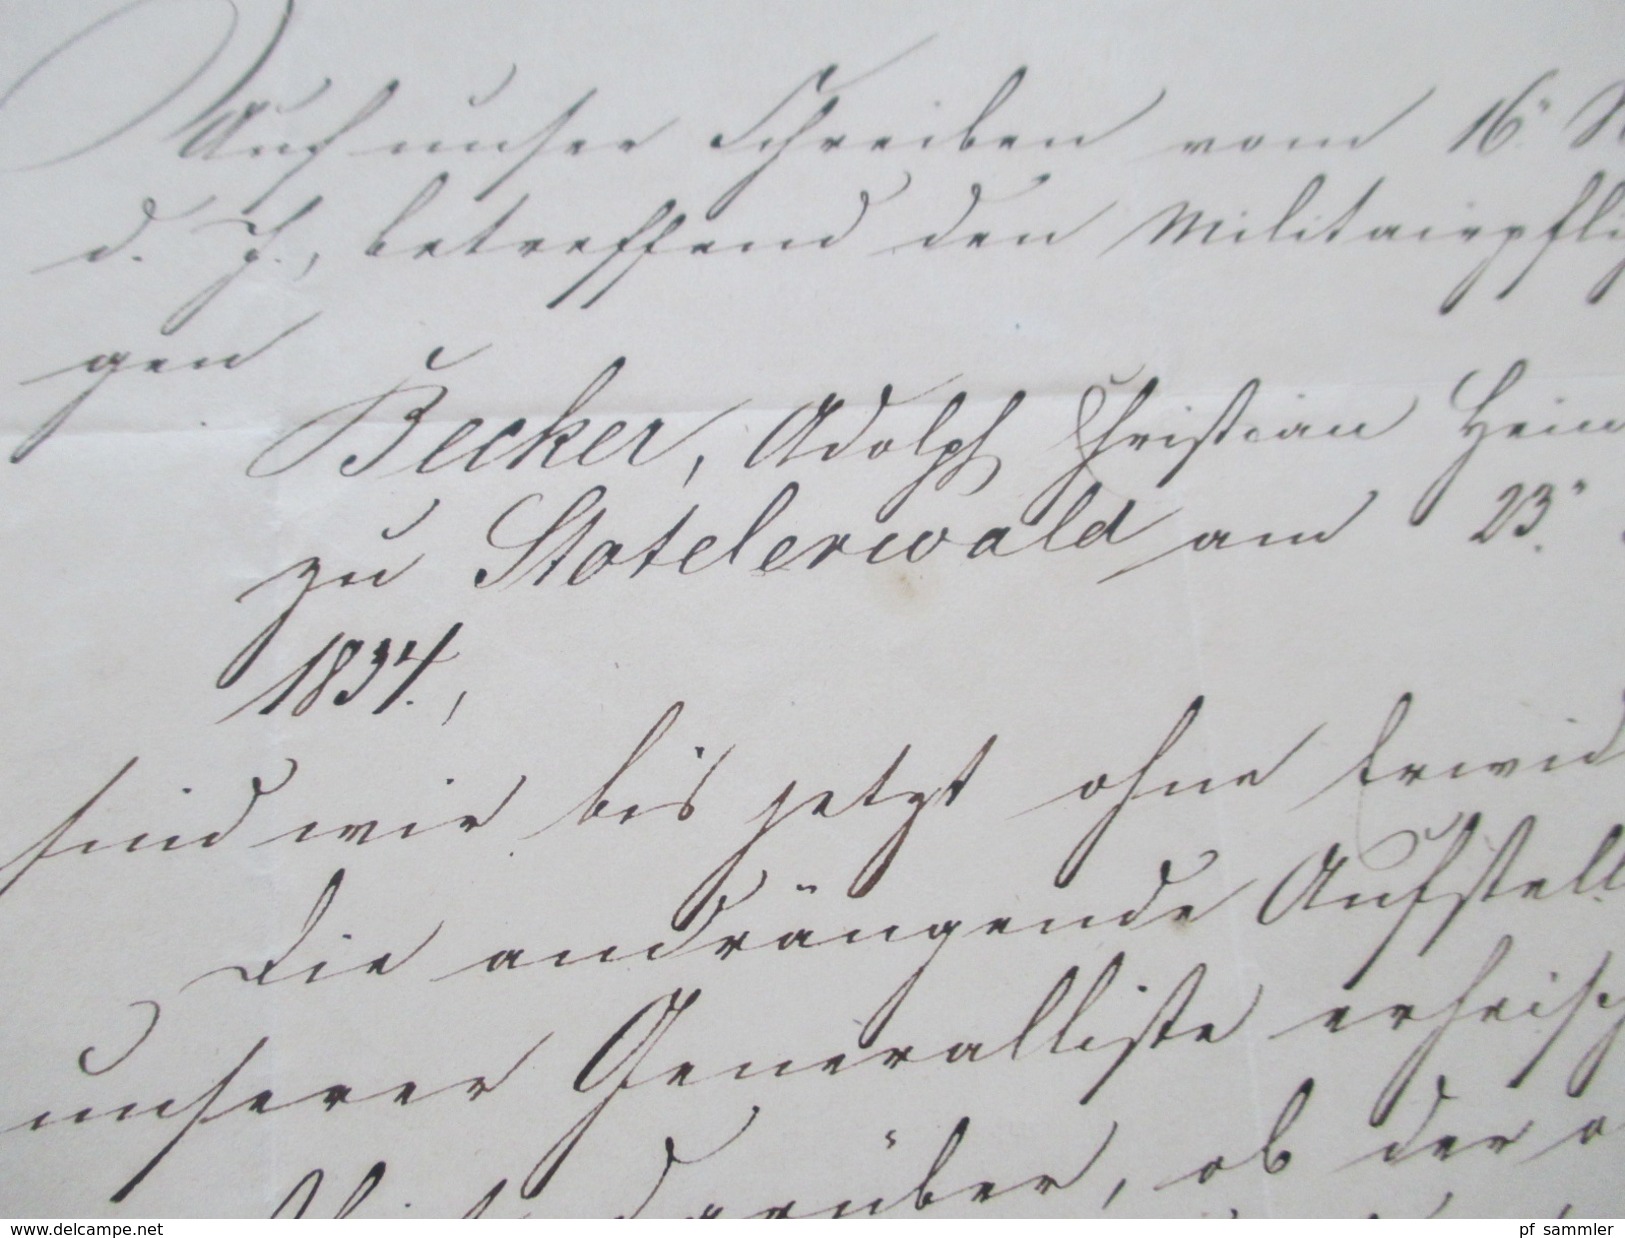 Auf unser Schreiben vom 16.
d. J., betreffend den Militairpfli
gen
Becker, Adolph Christian Hein
zu Stotelerwald am 23.
1834.,
sind wir bis jetzt ohne Erwid
Die andrängende Aufstell
unserer Generalliste erheisch
darüber, ob der
www.delcampe.net
pf sammler